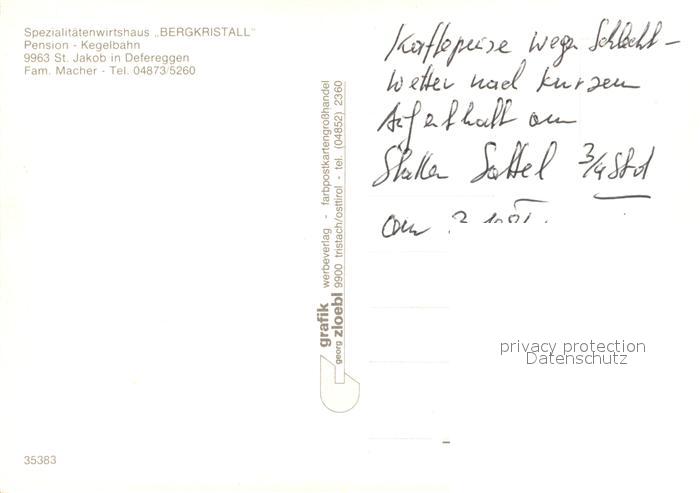 Spezialitätenwirtshaus „BERGKRISTALL"
Pension - Kegelbahn
9963 St. Jakob in Defereggen
Fam. Macher - Tel. 04873/5260
Kaffepause wegen Schlecht-
wetter nach kurzem
Aufenthalt am
Staller Sattel 3/4 Std
am
grafik werbeverlag - farbpostkartengroßhandel
georg zloebl 9900 tristach/osttirol - tel. (04852) 2360
privacy protection
Datenschutz
35383